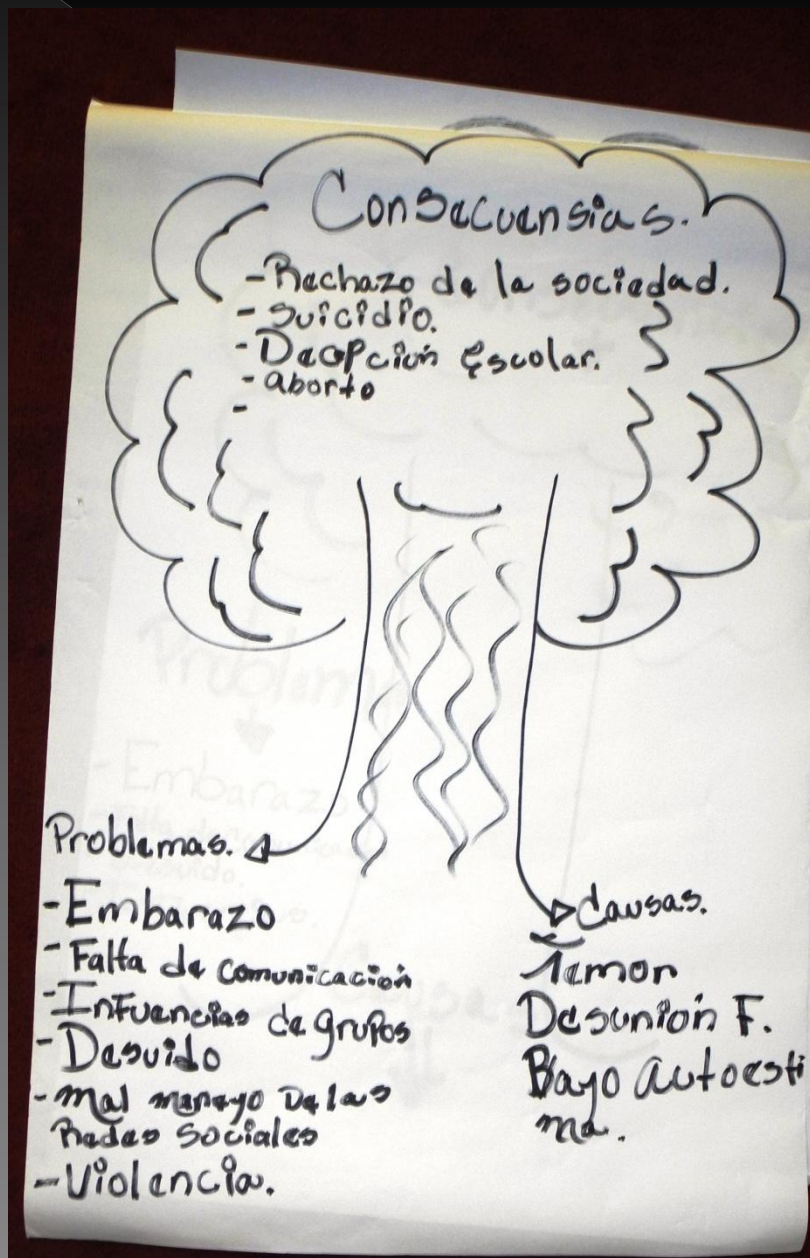 Consecuensias.
-Rechazo de la sociedad.
- Suicidio.
- Decpción Escolar.
- aborto
-
Problemas.
-Embarazo
- Falta de comunicación
-Infuencias de grupos
- Desuido
- mal manayo De las
Redes Sociales
-Violencia.
Causas.
Temor
Desunión F.
Bayo autoesti
ma.
Problem
- Embarazo
Causas